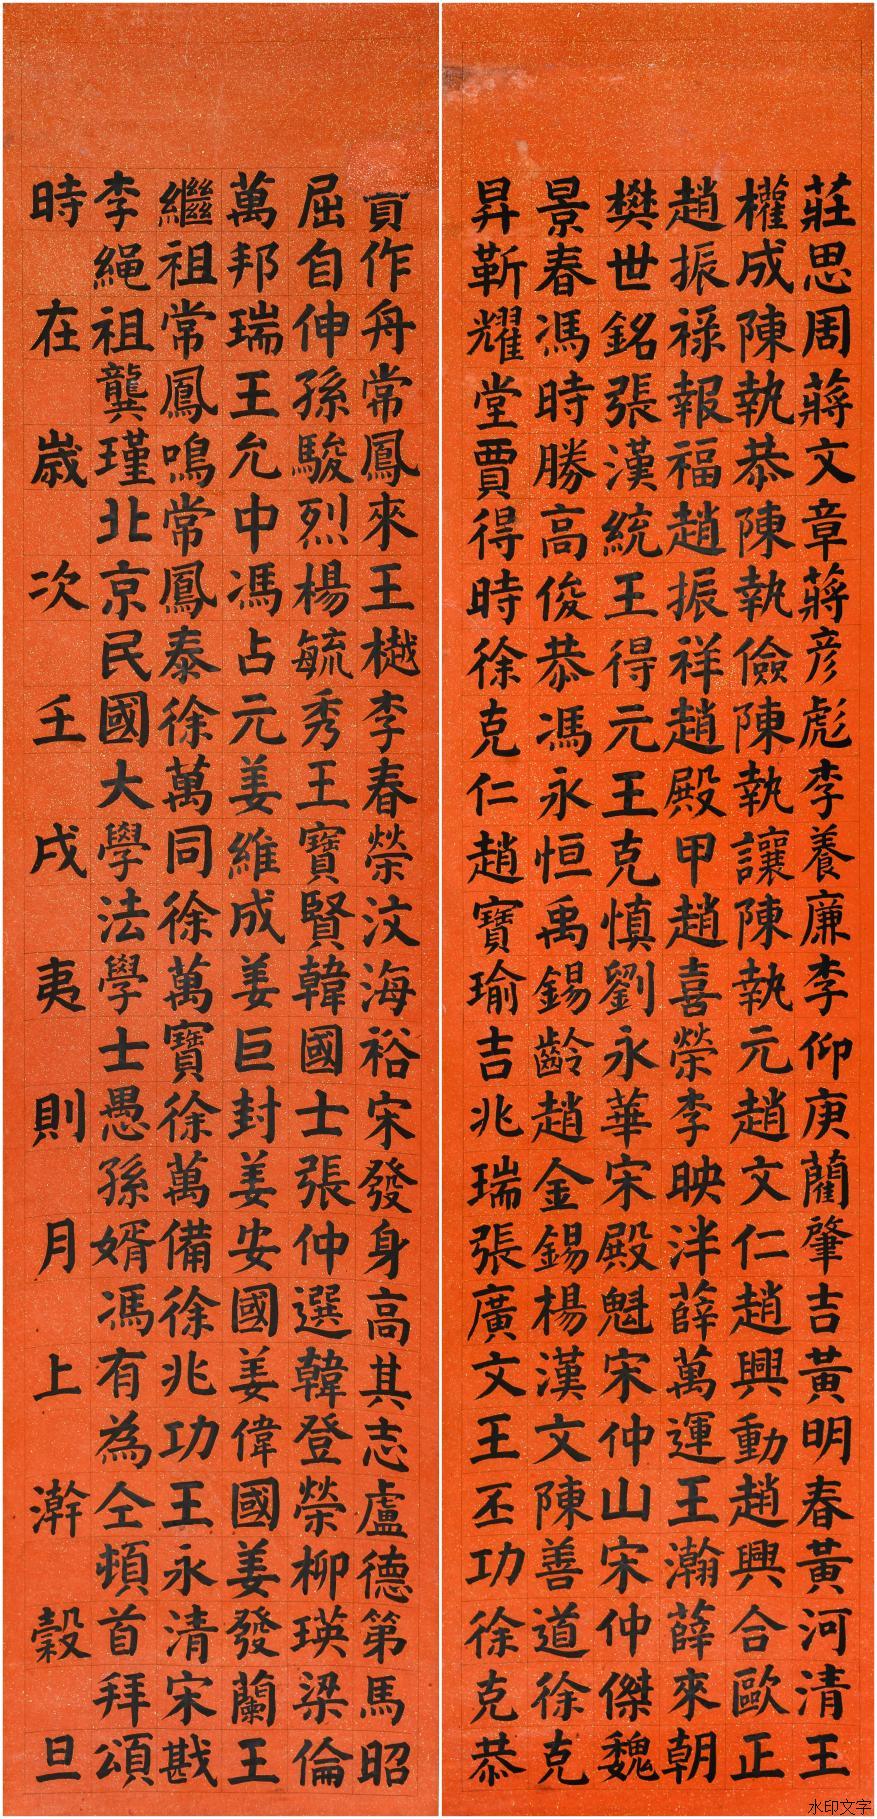 莊思周蔣文章蔣彦彪李養廉李仰庚藺肇吉黃明春黃河清王
權成陳執恭陳執儉陳執讓陳執元趙文仁趙興動趙興合歐正
趙振祿報福趙振祥趙殿甲趙喜榮李映泮薛萬運王瀚薛來朝
樊世銘張漢統王得元王克慎劉永華宋殿魁宋仲山宋仲傑魏
景春馮時勝高俊恭馮永恒禹錫齡趙金錫楊漢文陳善道徐克
昇靳耀堂賈得時徐克仁趙寶瑜吉兆瑞張廣文王丕功徐克恭
作舟常鳳來王樾李春榮汶海裕宋發身高其志盧德第馬昭
屈自伸孫駿烈楊毓秀王寶賢韓國士張仲選韓登榮柳瑛梁倫
萬邦瑞王允中馮占元姜維成姜巨封姜安國姜偉國姜發蘭王
繼祖常鳳鳴常鳳泰徐萬同徐萬寶徐萬備徐兆功王永清宋戡
李繩祖龔瑾北京民國大學法學士愚孫婿馮有為仝頓首拜頌
時在嵗次壬戌夷則月上澣穀旦
水印文字